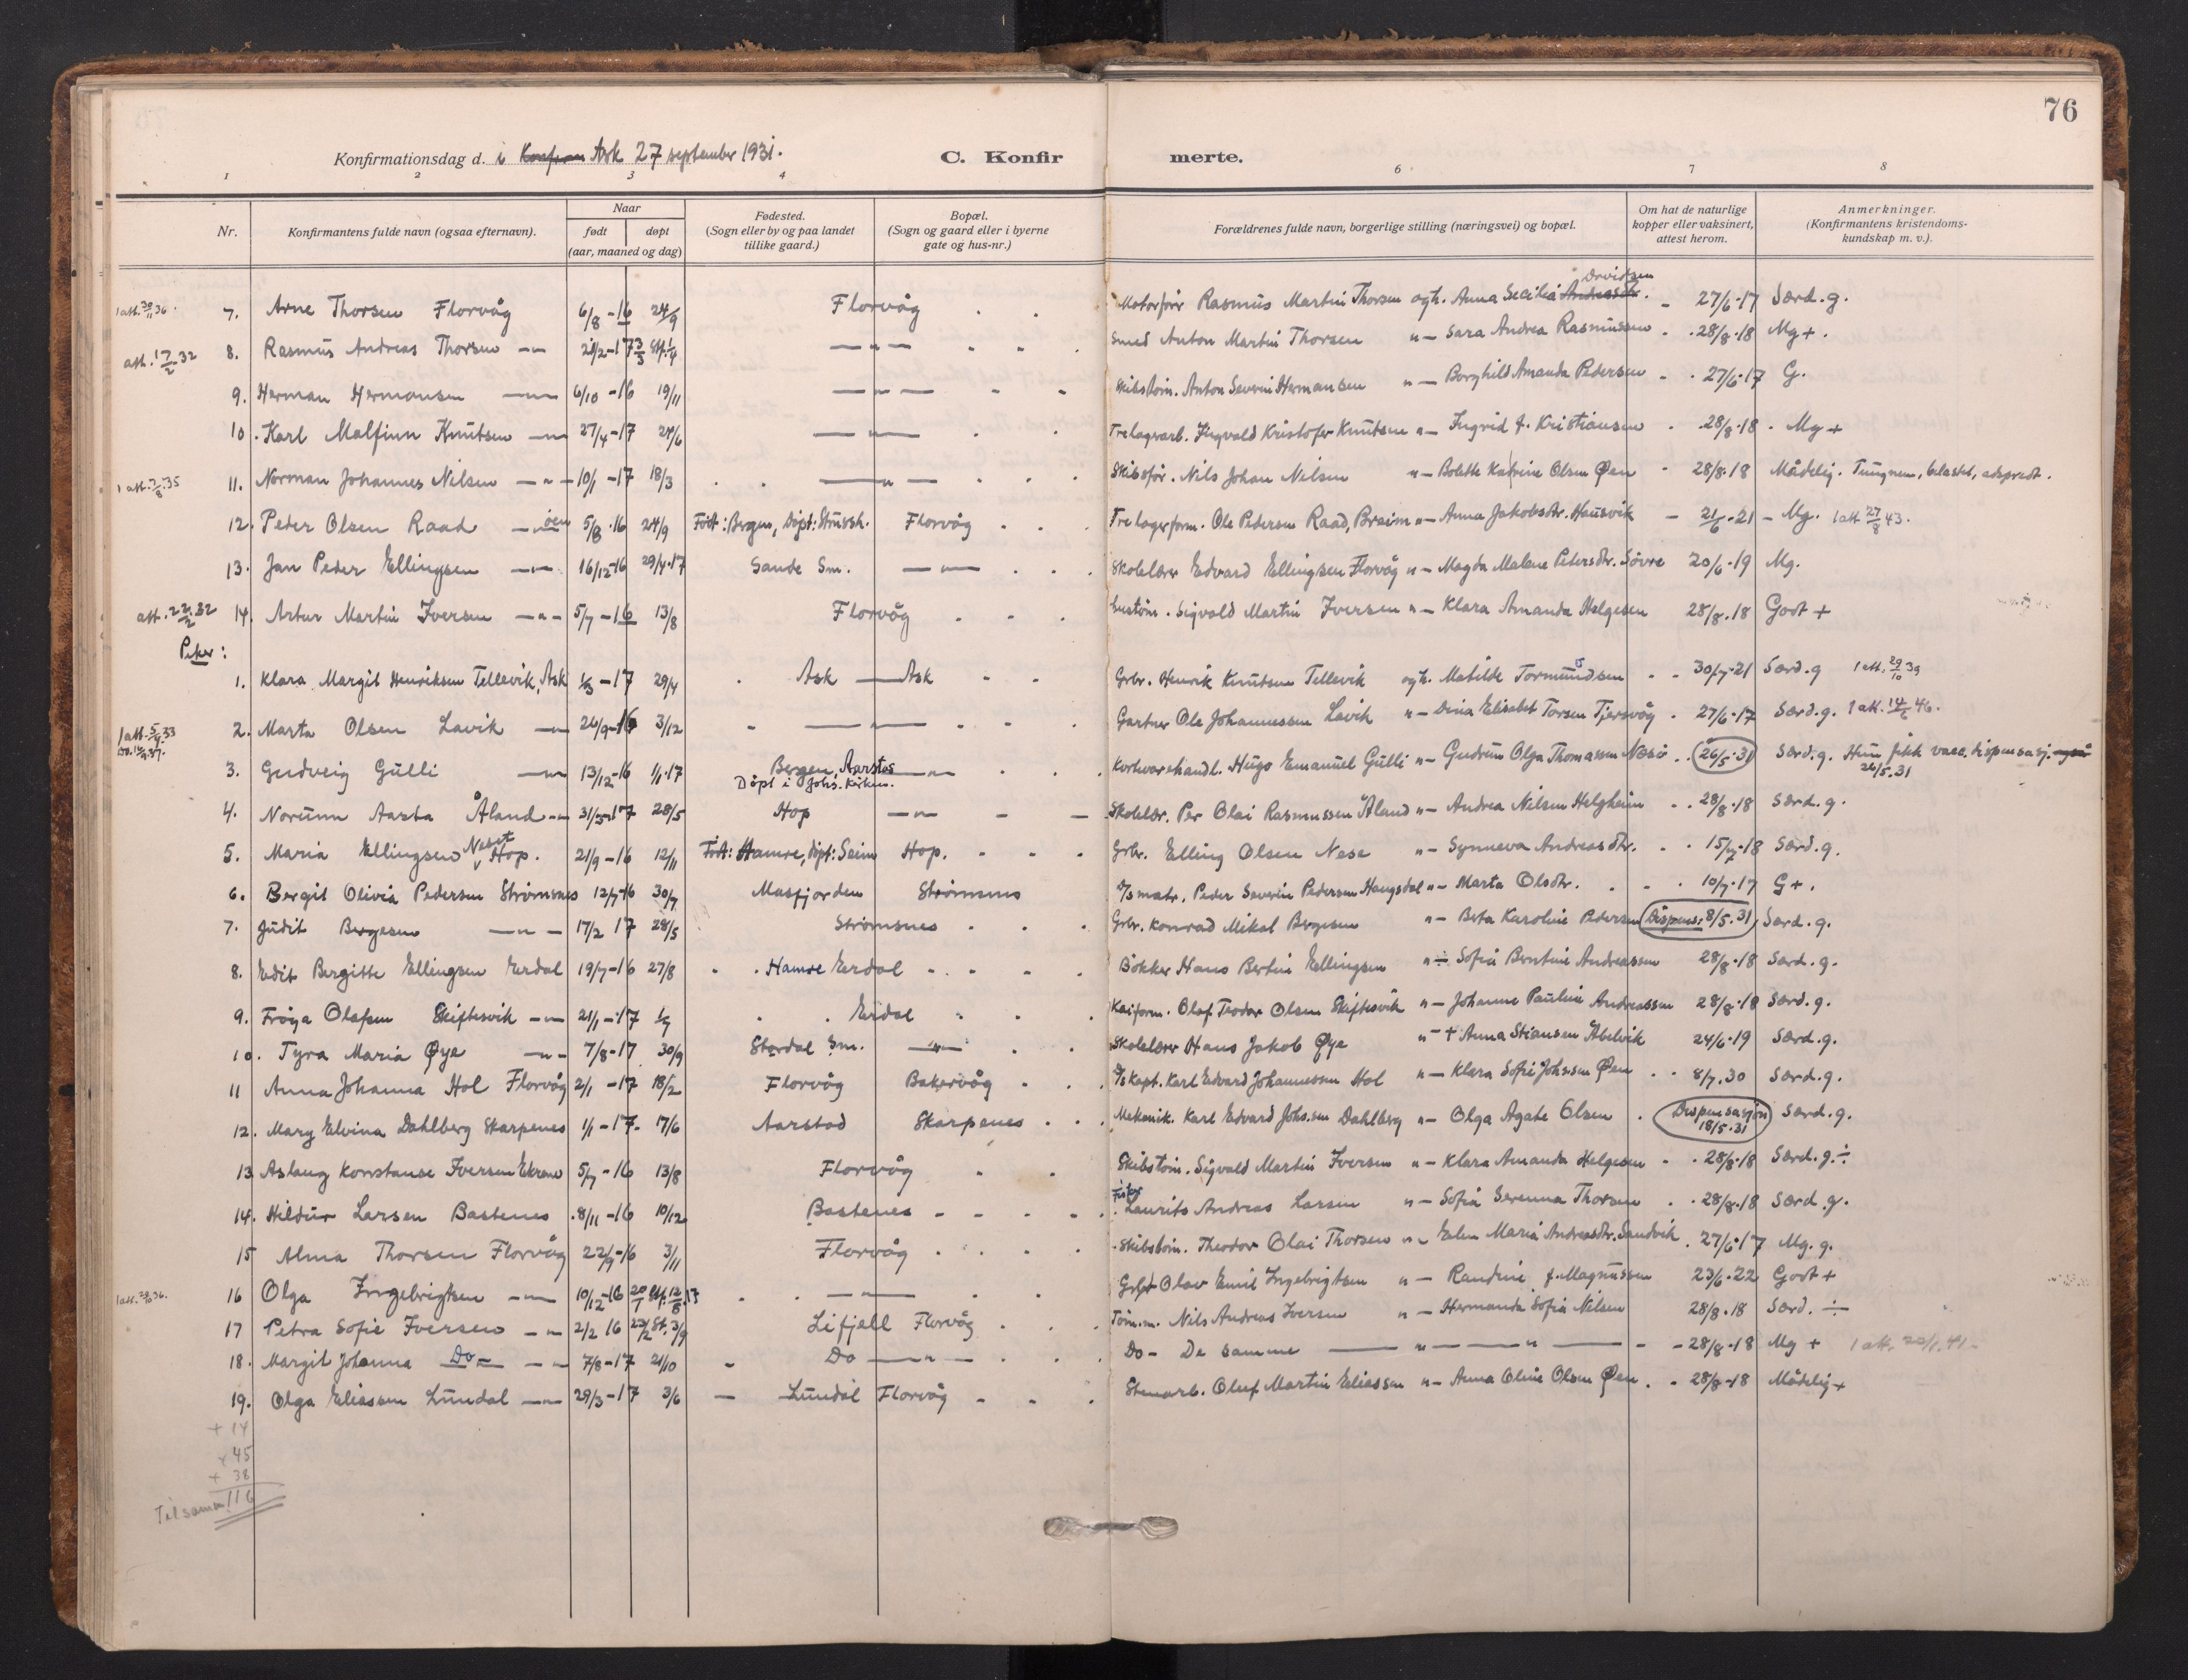 76
Konfirmationsdag d. i Ask 27 september 1931. C. Konfirmerte.
1 2 3 4 6 7 8
Nr. Konfirmantens fulde navn (ogsaa efternavn). Naar født døpt (aar, maaned og dag) Fødested. (Sogn eller by og paa landet tillike gaard.) Bopæl. (Sogn og gaard eller i byerne gate og hus-nr.) Forældrenes fulde navn, borgerlige stilling (næringsvei) og bopæl. Om hat de naturlige kopper eller vaksinert, attest herom. Anmerkninger. (Konfirmantens kristendomskundskap m. v.).
1 att. 30/11 36. 7. Arne Thorsen Florvåg 6/8-16 24/9 Florvåg Motorfør Rasmus Martin Thorsen ogh. Anna Secilia Andreasdr. Davidsen 27/6-17 Særd. g.
att. 17/2 32 8. Rasmus Andreas Thorsen -"- 21/2-17 -"- Smed Anton Martin Thorsen "- Sara Andrea Rasmussen 28/8-18 Mg+.
9. Herman Hermansen -"- 6/10-16 19/11 -"- Skibstøm. Anton Severin Hermansen "- Borghild Amanda Pedersen 27/6-17 G.
10. Karl Malfinn Knutsen -"- 27/4-17 24/6 -"- Trelagerarb. Ingvald Kristofer Knutsen "- Ingrid f. Kristiansen 28/8-18 Mg+
1 att. 7/8.35 11. Norman Johannes Nilsen -"- 10/1-17 18/3 -"- Skibsfør. Nils Johan Nilsen "- Bolette Katrine Olsen Øen 28/8-18 Mådelig. Tungnem, adspredt.
12. Peder Olsen Raad -"- øen 5/8-16 24/9 Født: Bergen, Døpt: Florvåg Trelagerform. Ole Pedersen Raad, "- Anna Jakobsdr. Hausvik 21/6-21 Mg. 1 att 27/8 43.
13. Jan Peder Ellingsen -"- 16/12-16 29/4-17 Sande Sm. -"- Skolelærer Edvard Ellingsen Florvåg "- Magda Malene Petersdr. Søvre 20/6-19 Mg.
att. 22/2 32 14. Artur Martin Iversen -"- 5/7-16 13/8 Florvåg Sigvald Martin Iversen "- Klara Amanda Helgesen 28/8.18 Godt +
Piker:
1. Klara Margit Henriksen Tellevik, Ask -17 29/4 Ask Ask Grbr. Henrik Knutsen Tellevik ogh. Matilde Tormundsen 30/7-21 Særd. g 1 att. 29/10 39
1 att. 5/9 33 2. Marta Olsen Lavik -"- 24/9-16 3/12 -"- Gartner Ole Johannessen Lavik "- Dina Elisabet Torsen Tjersvåg 27/6-17 Særd. g. 1 att. 14/6 46.
3. Gudveig Gulli -"- 13/12-16 1/1-17 Bergen, Aarstad Døpt i Johs. kirken. -"- Kortvarehandl. Hugo Emanuel Gulli "- Gudrun Olga Thomassen Næsø 26/5-31 Særd. g. Hun fikk vacc. dispensasj. 26/5.31
4. Norunn Aasta Åland -"- 31/3-17 28/5 Hop -"- Skolelær. Per Olai Rasmussen Åland "- Andrea Nilsen Helgheim 28/8-18 Særd. g.
5. Maria Ellingsen Neset Hop. 21/9-16 12/11 Født: Hamre, døpt: Seim Hop. Grbr. Elling Olsen Nese "- Synneva Andreasdr. 15/7-18 Særd. g.
6. Bergit Olivia Pedersen Strømsnes 12/7-16 30/7 Masfjorden Strømsnes D/S matr. Peder Severin Pedersen Haugsdal "- Marta Olsdtr. 10/7-17 G+.
7. Judit Bergesen -"- 17/2 17 28/5 Strømsnes Grbr. Konrad Mikal Bergesen "- Berta Karoline Pedersen Dispens: 8/5.31, Særd. g.
8. Edit Bergitte Ellingsen Erdal 19/7-16 27/8 Hamre Erdal Bøkker Hans Bertin Ellingsen "- Sofia Berntine Andreassen 28/8-18 Særd. g.
9. Frøya Olafsen Skiftesvik -"- 21/1-17 1/7 Erdal Kaiform. Olaf Teodor Olsen Skiftesvik "- Johanne Pauline Andreassen 28/8-18 Særd. g.
10. Tyra Maria Øye -"- 7/8-17 30/9 Stordal Sm. -"- Skolelærer Hans Jakob Øye "- + Anna Stiansen Åbelvik 24/6-19 Særd. g.
11 Anna Johanna Hol Florvåg 2/1-17 18/2 Florvåg Bakervåg D/S Kapt. Karl Edvard Johannessen Hol "- Klara Sofie Johnsen Øen 8/7.30 Særd. g.
12. Mary Elvina Dahlberg Skarpenes 1/1-17 17/6 Aarstad Skarpenes Mekanik. Karl Edvard Johs.sen Dahlberg "- Olga Agate Olsen Dispensasjon 18/5.31 Særd. g.
13 Aslaug Konstanse Iversen Ekren 5/7-16 13/8 Florvåg Skibstøm. Sigvald Martin Iversen "- Klara Amanda Helgesen 28/8-18 Særd. g. ÷
14. Hildur Larsen Bastenes 8/11-16 10/12 Bastenes Fisker Laurits Andreas Larsen "- Sofia Serenna Thorsen 28/8-18 Særd. g.
15 Alma Thorsen Florvåg 22/9-16 3/11 Florvåg Skibstøm. Theodor Olai Thorsen "- Elen Maria Andreasdtr. Sandvik 27/6-17 Mg. g.
16 Olga Ingebrigtsen -"- 10/12-16 -"- Olav Emil Ingebrigtsen "- Randine f. Magnussen 23/6.22 Godt +
17 Petra Sofie Iversen -"- 2/2 16 Lifjell Florvåg Tøm.m. Nils Andreas Iversen "- Hermanda Sofia Nilsen 28/8.18 Særd. ÷
18. Margit Johanna Do -"- 7/8-17 21/10 Do -"- Do- De samme -"- 28/8-18 Mg + 1 att. 22/1.41-
19. Olga Eliassen Lundal -"- 29/3-17 3/6 Lundal Florvåg Stenarb. Oluf Martin Eliassen "- Anna Oline Olsen Øen 28/8-18 Mådelig+
+ 14
+ 45
+ 38
Tilsammen 116